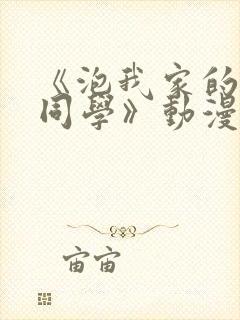 《泡我家的
同學》動漫
宙宙